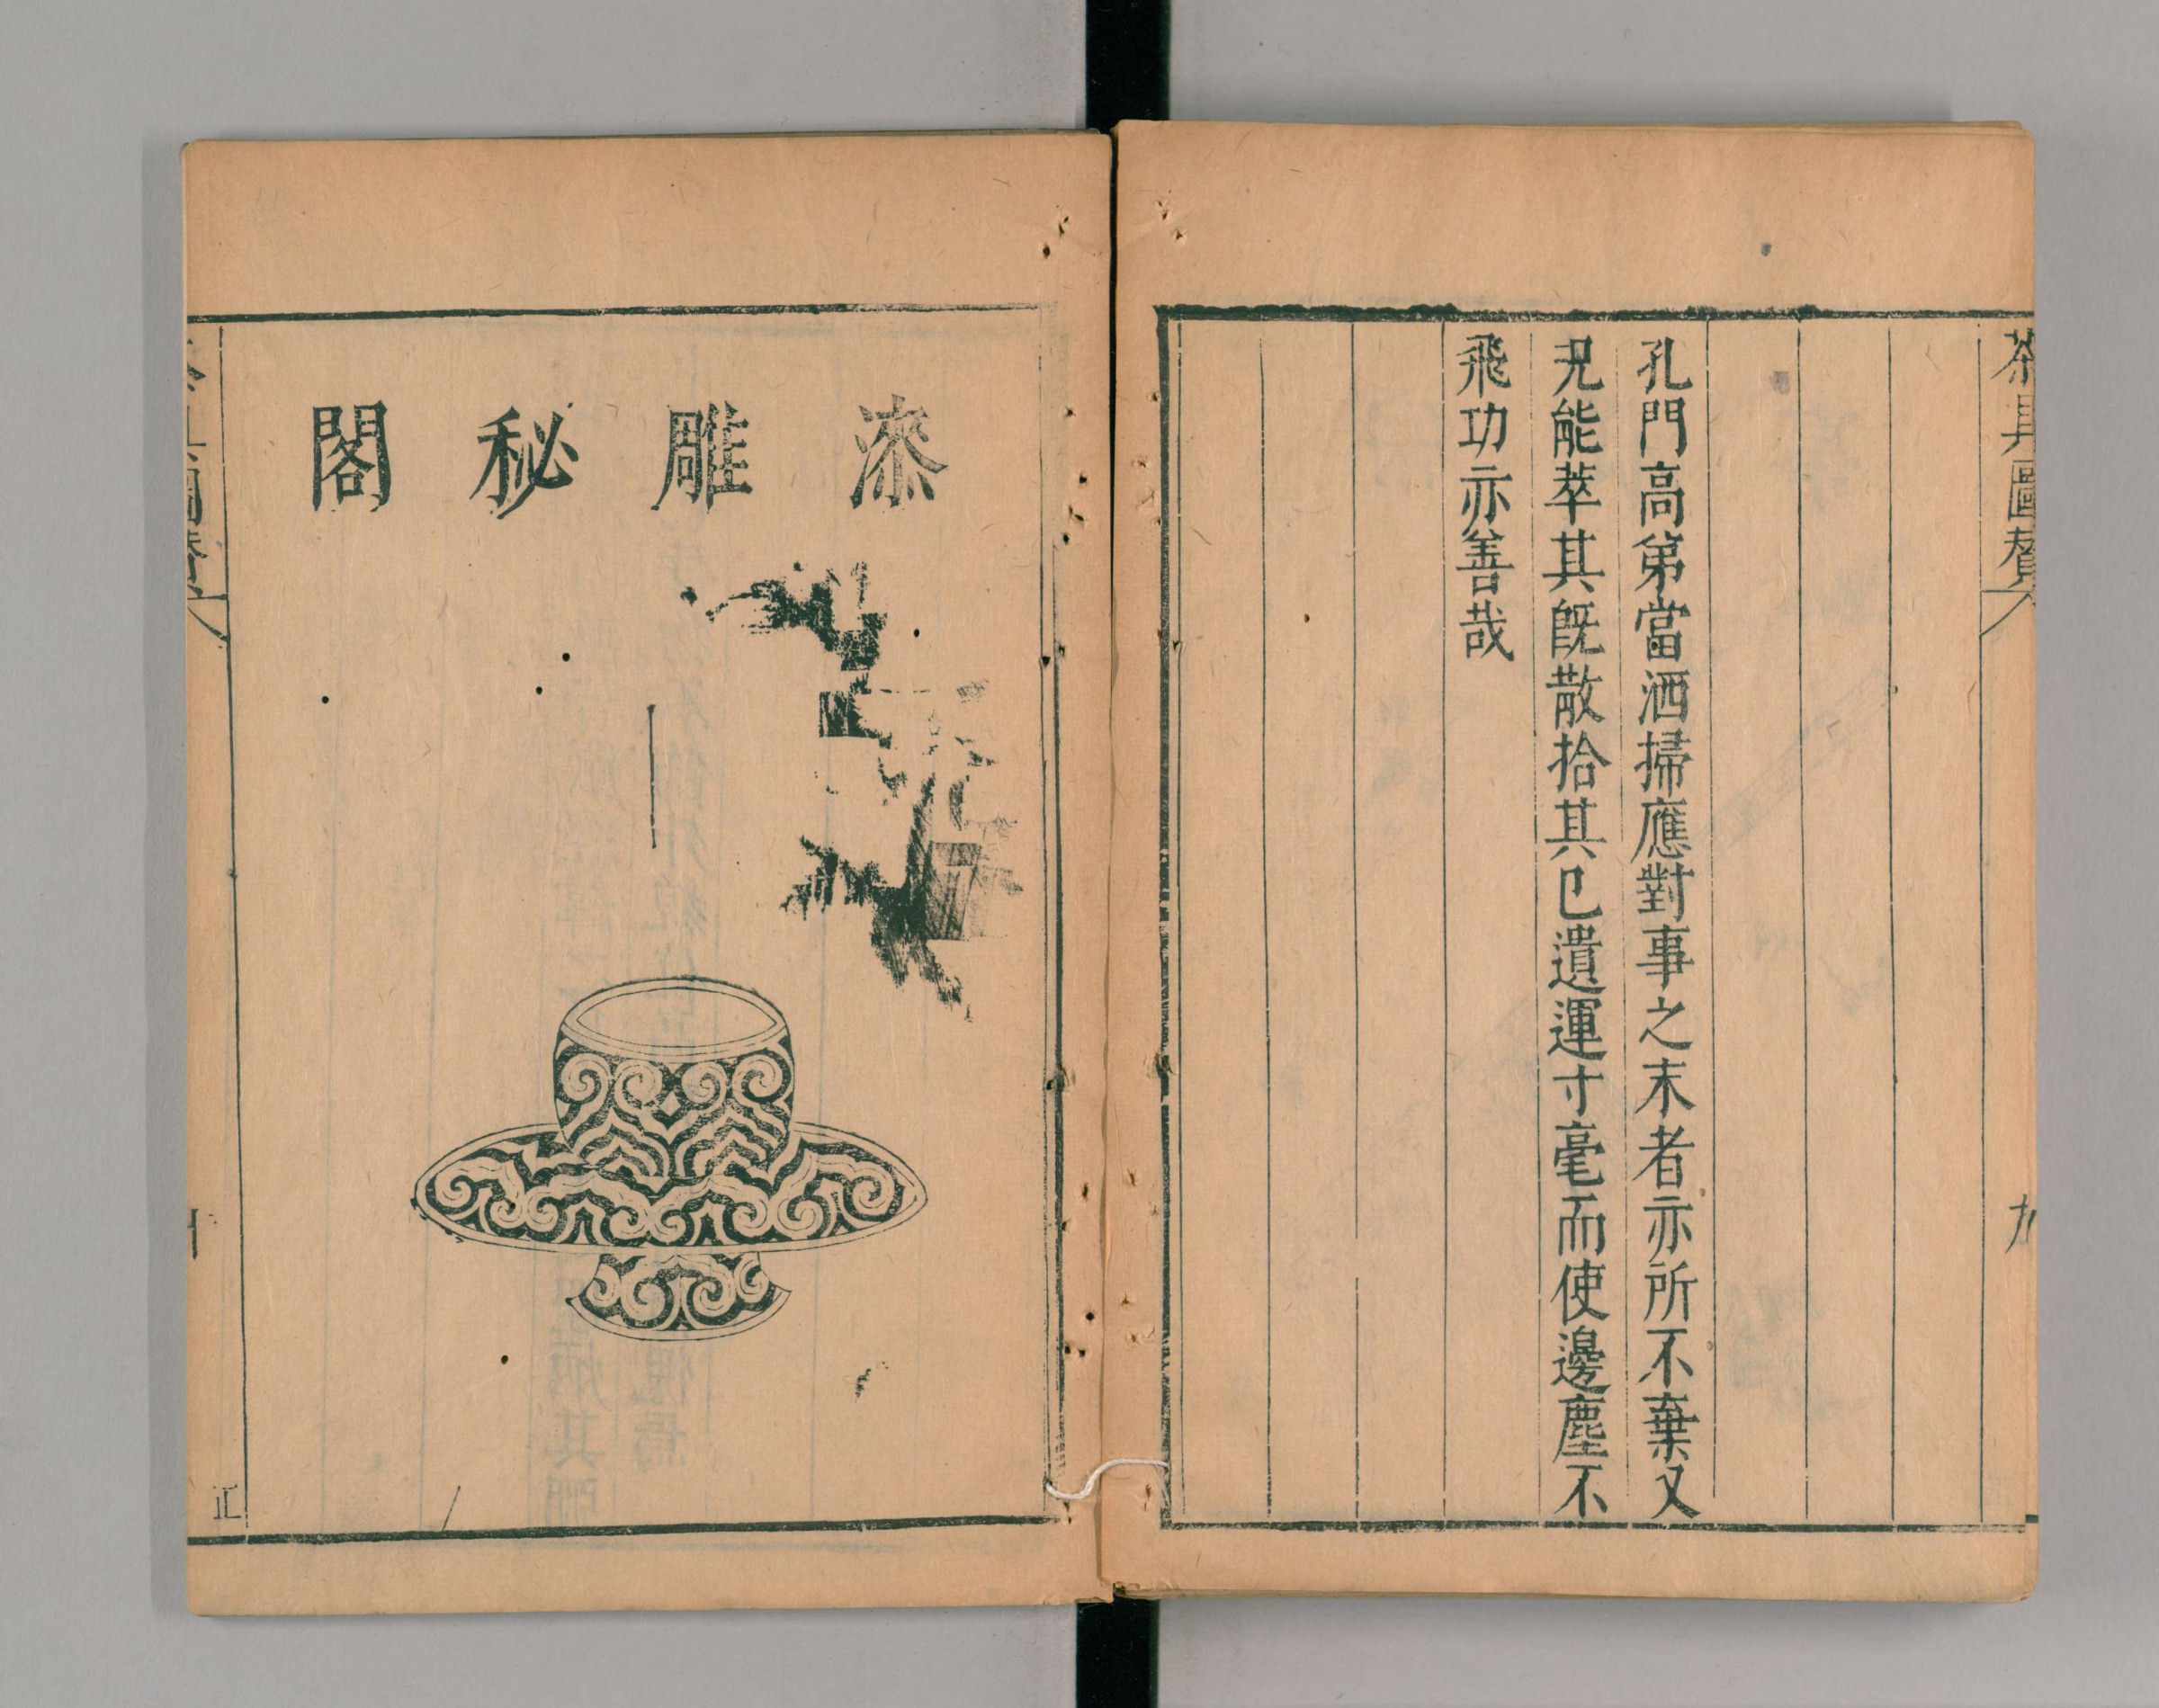 茶具圖贊
九
孔門高弟當洒掃應對事之末者亦所不棄又
况能萃其旣散拾其已遺運寸毫而使邊塵不
飛功亦善哉
漆雕秘閣